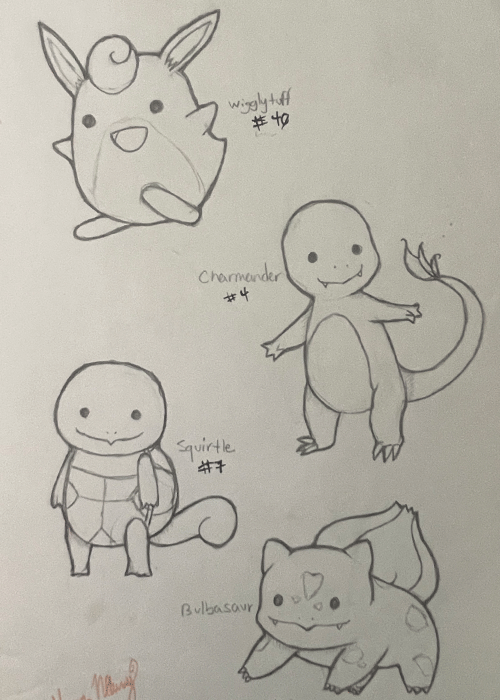 Wigglytuff
#40
Charmander
#4
Squirtle
#7
Bulbasaur